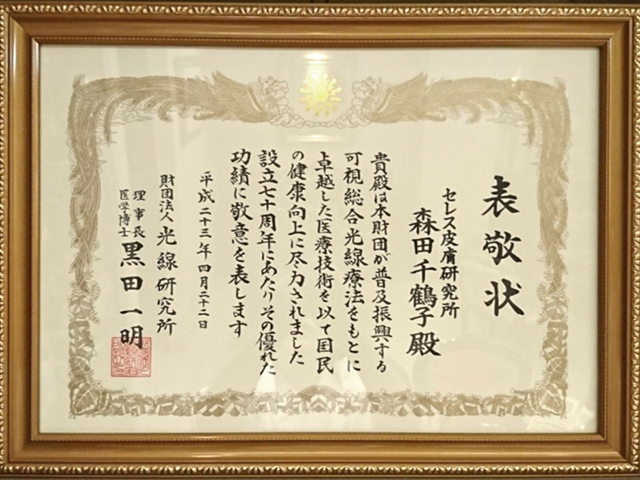 表敬状
セレス皮膚研究所
森田千鶴子殿
貴殿は本財団が普及振興する
可視総合光線療法をもとに
卓越した医療技術を以て国民
の健康向上に尽力されました
設立七十周年にあたりその優れた
功績に敬意を表します
平成二十三年四月二十二日
財団法人 光線研究所
理事長
医学博士
黒田一明